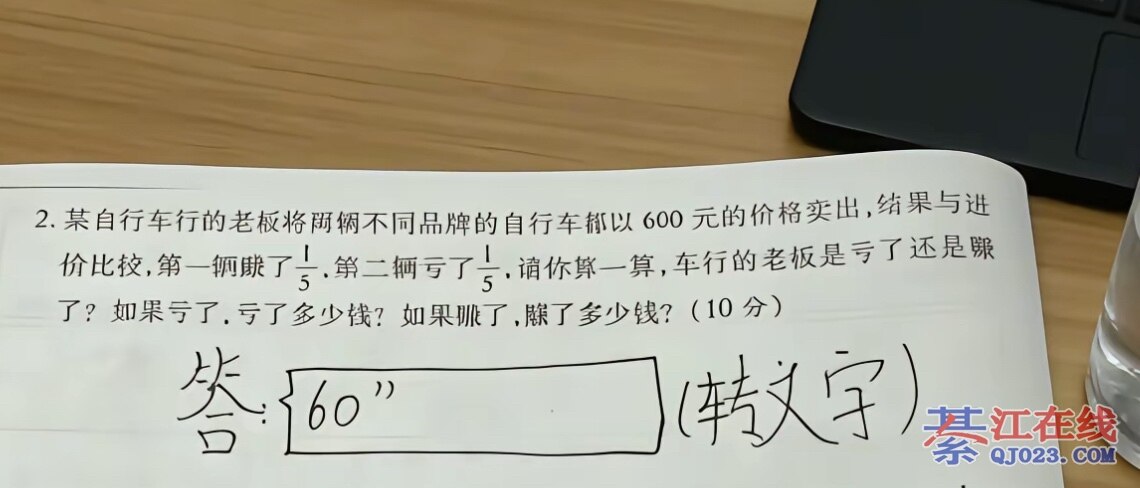 2. 某自行车行的老板将两辆不同品牌的自行车都以 600 元的价格卖出,结果与进
价比较,第一辆赚了1/5,第二辆亏了1/5,请你算一算,车行的老板是亏了还是赚
了? 如果亏了,亏了多少钱? 如果赚了,赚了多少钱? (10 分)
答: 60” (转文字)
綦江在线
QJ023.COM